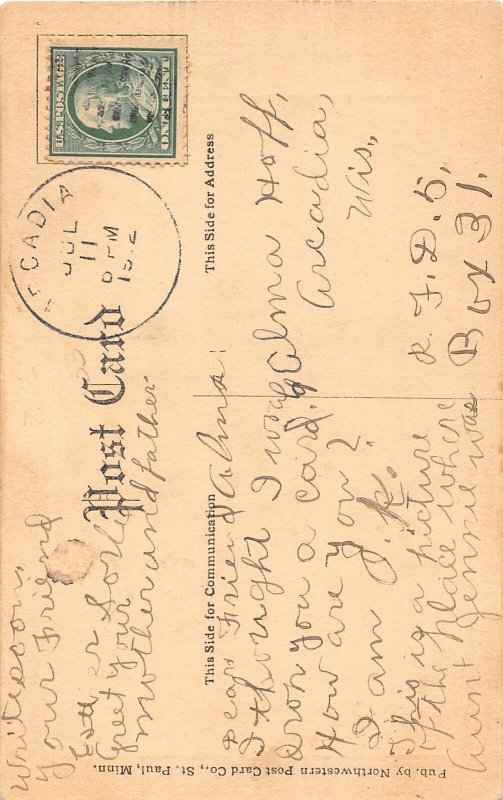 U.S. POSTAGE
ONE CENT
ARCADIA
JUL
11
6 PM
1912
Post Card
This Side for Communication
This Side for Address
Dear Friend Alma:
I thought I would
drop you a card.
How are you?
I am J.K.
This is a picture
of the place where
Aunt Jennie was
Write soon,
Your Friend
Greet your
mother and father
Alma Hoff,
Arcadia,
Wis.,
R. F. D. 5,
Box 31.
Pub. by Northwestern Post Card Co., St. Paul, Minn.